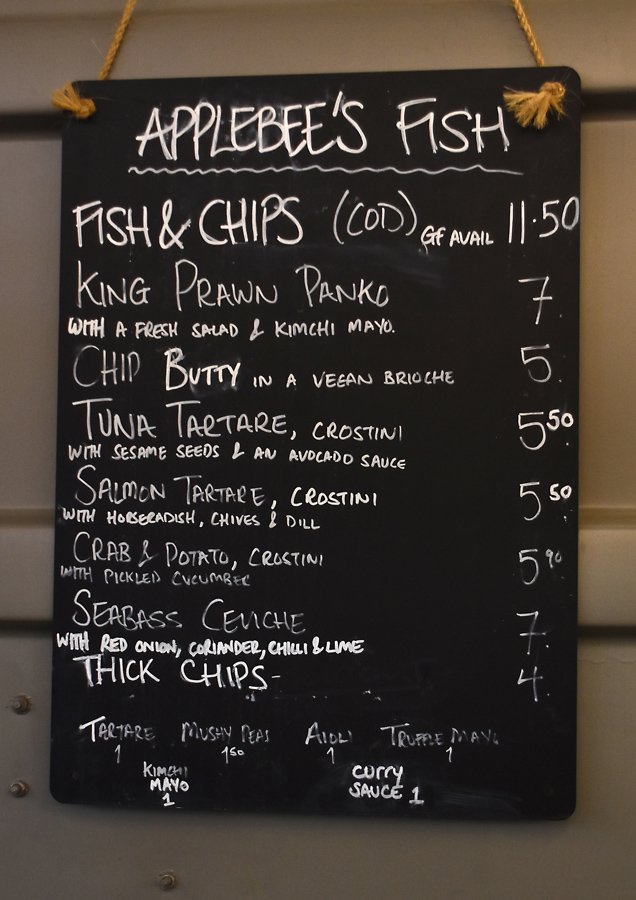 APPLEBEE'S FISH
FISH & CHIPS (COD) GF AVAIL 11.50
KING PRAWN PANKO 7.
WITH A FRESH SALAD & KIMCHI MAYO.
CHIP BUTTY IN A VEGAN BRIOCHE 5.
TUNA TARTARE, CROSTINI 5.50
WITH SESAME SEEDS & AN AVOCADO SAUCE
SALMON TARTARE, CROSTINI 5.50
WITH HORSERADISH, CHIVES & DILL
CRAB & POTATO, CROSTINI 5.90
WITH PICKLED CUCUMBER
SEABASS CEVICHE 7.
WITH RED ONION, CORIANDER, CHILLI & LIME
THICK CHIPS- 4.
TARTARE MUSHY PEAS AIOLI TRUFFLE MAYO
1 150 1 1
KIMCHI CURRY
MAYO SAUCE 1
1